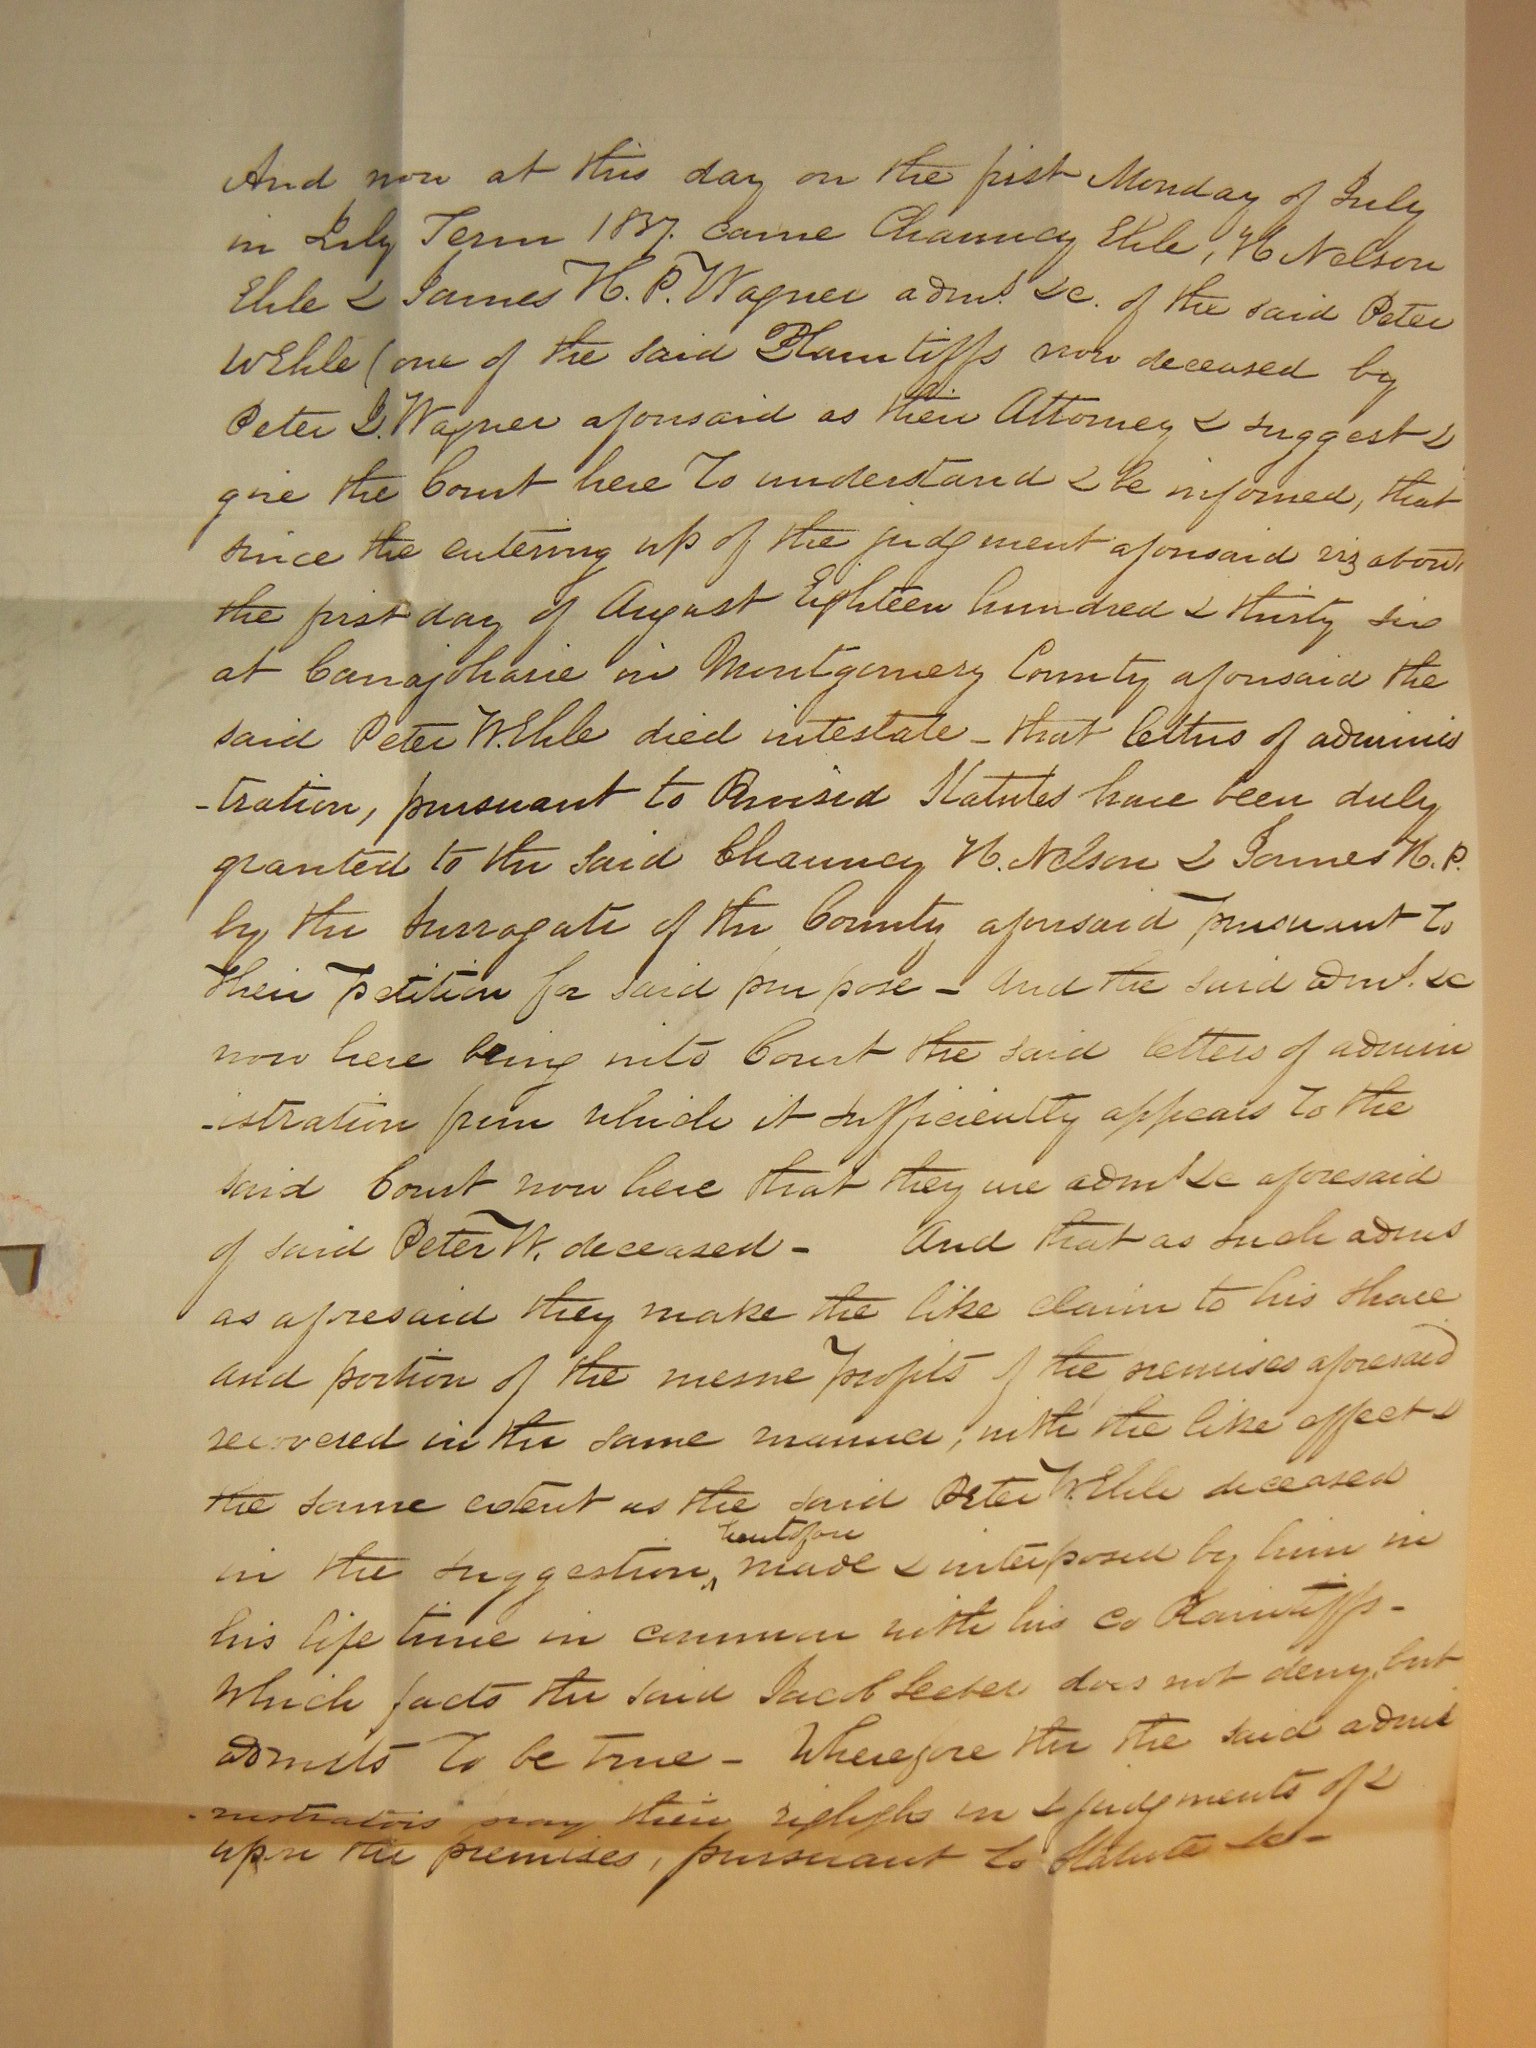 And now at this day on the first Monday of July
in July Term 1837. came Chauncey Ehle, H Nelson
Ehle & James H. P. Wagner admrs. &c. of the said Peter
W Ehle (one of the said Plaintiffs now deceased by
Peter J. Wagner aforesaid as their Attorney & suggest &
give the Court here to understand & be informed, that
since the entering up of the judgment aforesaid viz about
the first day of August Eighteen hundred & thirty six
at Canajoharie in Montgomery County aforesaid the
said Peter W. Ehle died intestate - that letters of adminis
-tration, pursuant to Revised Statutes have been duly
granted to the said Chauncey H. Nelson & James H. P.
by the Surrogate of the County aforesaid pursuant to
their petition for said purpose - And the said admrs. &c
now here being into Court the said letters of admin
-istration from which it sufficiently appears to the
said Court now here that they are admrs &c aforesaid
of said Peter W. deceased - And that as such admrs
as aforesaid they make the like claim to his share
and portion of the mesne profits of the premises aforesaid
recovered in the same manner, with the like effect &
the same extent as the said Peter W. Ehle deceased
in the suggestion, heretofore made & interposed by him in
his life time in common with his co Plaintiffs -
Which facts the said Jacob Seeber does not deny, but
admits to be true - Wherefore the the said admi
-nistrators pray their rights in & judgments of &
upon the premises, pursuant to Statute &c -